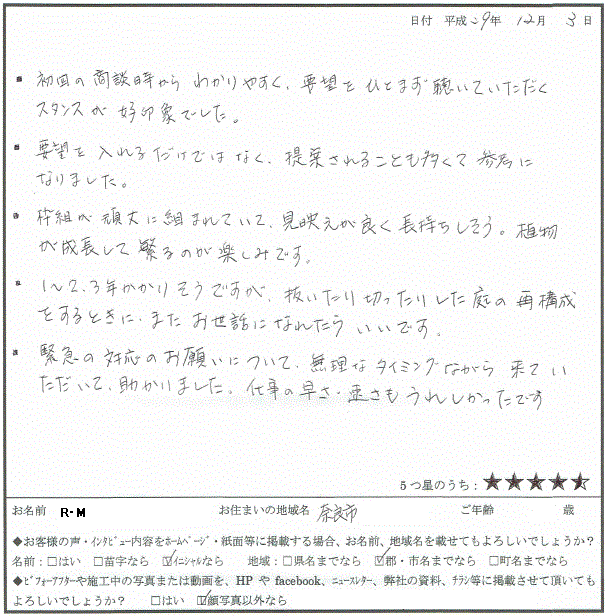 日付 平成 29年 12月 3日
初回の商談時から わかりやすく、要望を ひとまず 聴いていただく
スタンスが 好印象でした。
要望を 入れるだけでは なく、提案されることも多くて 参考に
なりました。
枠組が 頑丈に組まれていて、見映えが良く 長持ちしそう。植物
が成長して 繁るのが 楽しみです。
1〜2、3年かかりそうですが、抜いたり 切ったりした 庭の 再構成
をするときに、また お世話に なれたら いいです。
緊急の 対応の お願いについて、無理な タイミングながら 来てい
ただいて、助かりました。仕事の 早さ・速さも うれしかったです
5つ星のうち：★★★★★
お名前 R-M お住まいの地域名 奈良市 ご年齢 歳
◆お客様の声・インタビュー内容をホームページ・紙面等に掲載する場合、お名前、地域名を載せてもよろしいでしょうか？
名前：□はい □苗字なら ☑イニシャルなら 地域：□県名までなら ☑郡・市名までなら □町名までなら
◆ビフォーアフターや施工中の写真または動画を、HP や facebook、ニュースレター、弊社の資料、チラシ等に掲載させて頂いても
よろしいでしょうか？ □はい ☑顔写真以外なら